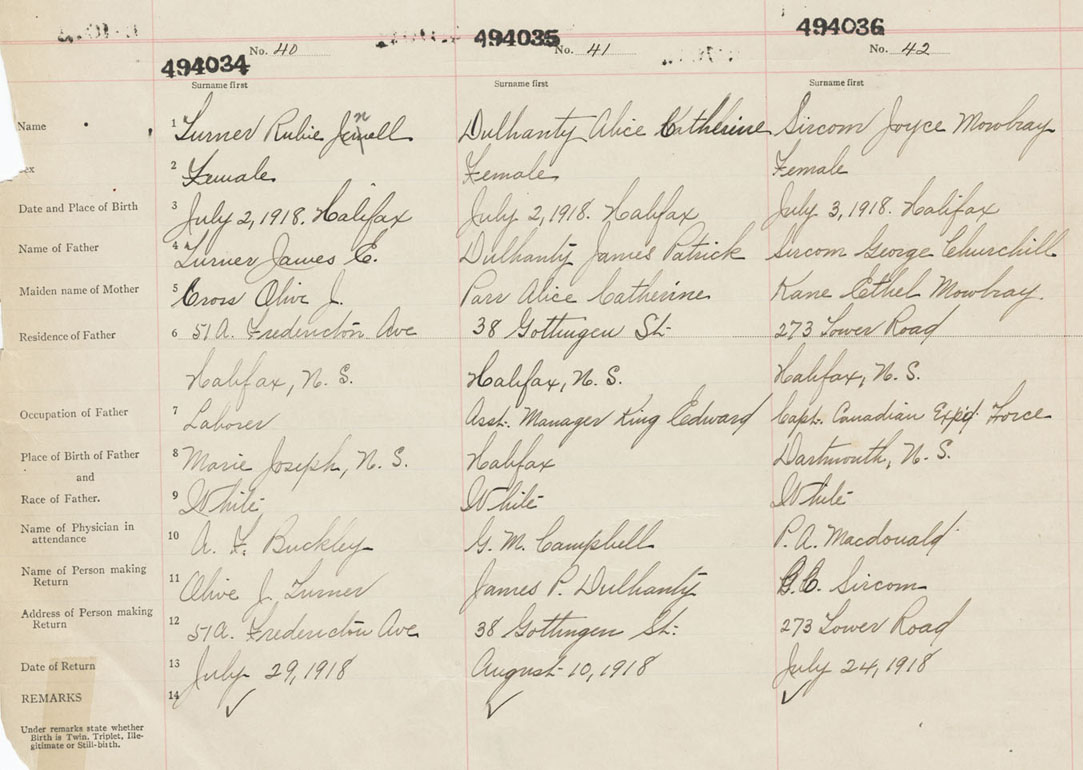 494034 494035 494036
No. 40 No. 41 No. 42
Surname first Surname first Surname first
Name 1 Turner Rubie Jennell Dulhanty Alice Catherine Sircom Joyce Mowbray
ex 2 Female Female Female
Date and Place of Birth 3 July 2, 1918. Halifax July 2, 1918. Halifax July 3, 1918. Halifax
Name of Father 4 Turner James E. Dulhanty James Patrick Sircom George Churchill
Maiden name of Mother 5 Cross Olive J. Parr Alice Catherine Kane Ethel Mowbray.
Residence of Father 6 51A. Fredericton Ave 38 Gottingen St. 273 Tower Road
Halifax, N. S. Halifax, N. S. Halifax, N. S.
Occupation of Father 7 Laborer Asst. Manager King Edward Capt. Canadian Exp'd. Force
Place of Birth of Father 8 Marie Joseph, N. S. Halifax Dartmouth, N. S.
and
Race of Father. 9 White White White
Name of Physician in attendance 10 A. F. Buckley G. M. Campbell P. A. Macdonald
Name of Person making Return 11 Olive J. Turner James P. Dulhanty G. C. Sircom
Address of Person making Return 12 51A. Fredericton Ave 38 Gottingen St. 273 Tower Road
Date of Return 13 July 29, 1918 August 10, 1918 July 24, 1918
REMARKS 14 ✓ ✓ ✓
Under remarks state whether
Birth is Twin, Triplet, Ille-
gitimate or Still-birth.